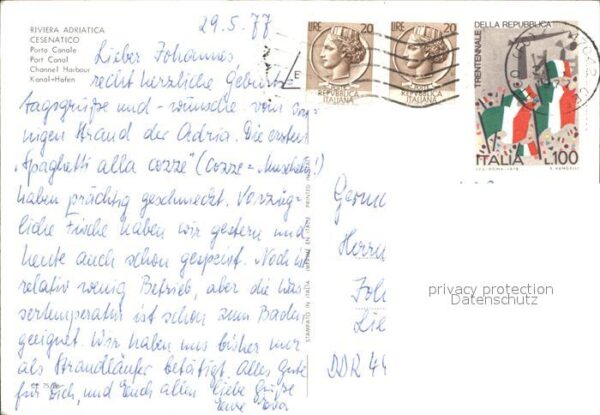 RIVIERA ADRIATICA
CESENATICO
Porto Canale
Port Canal
Channel Harbour
Kanal-Hafen
29.5.77
Lieber Johannes
recht herzliche Geburts-
tagsgrüße und -wünsche vom son-
nigen Strand der Adria. Die ersten
"Spaghetti alla cozze" (cozze = Muscheln!)
haben prächtig geschmeckt. Vorzüg-
liche Fische haben wir gestern und
heute auch schon gespeist. Noch ist
relativ wenig Betrieb, aber die Was-
sertemperatur ist schon zum Baden
geeignet. Wir haben uns bisher nur
als Strandläufer betätigt. Alles Gute
für Dich, und Euch allen liebe Grüße
Eure
LIRE 20
REPUBBLICA
ITALIANA
LIRE 20
REPUBBLICA
ITALIANA
TRENTENNALE DELLA REPUBBLICA
ITALIA L.100
STAMPATO IN ITALIA
PRINTED
Herrn
DDR
privacy protection
Datenschutz